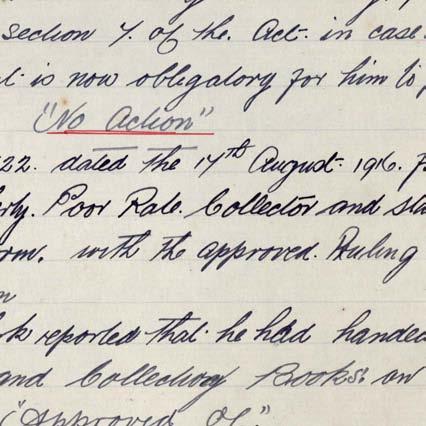 section 7. of the. Act. in case
is now obligatory for him to
"No Action"
22. dated the 17th August. 1916.
Poor Rate. Collector and
with the approved. Ruling
reported that he had handed
and Collecting Books. on
"Approved Of."